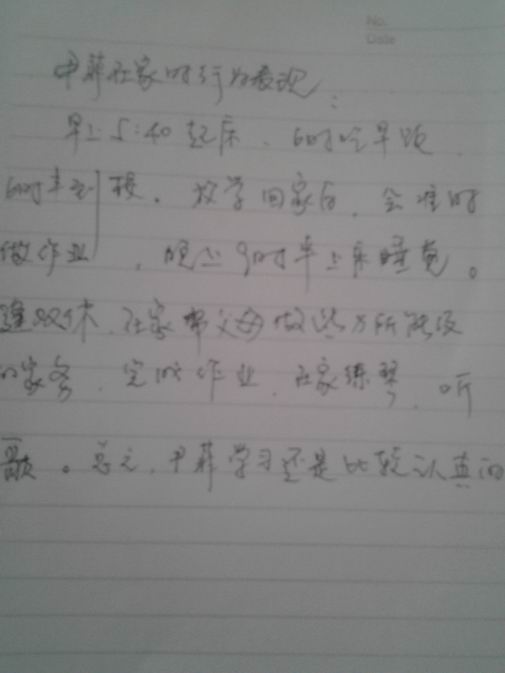 No.
Date
尹菲在家的行为表现:
早上5:40起床、6时吃早饭
6时半到校。放学回家后,会准时
做作业,晚上9时半上床睡觉。
逢双休,在家帮父母做些力所能及
的家务,完成作业,在家练琴,听
歌。总之,尹菲学习还是比较认真的